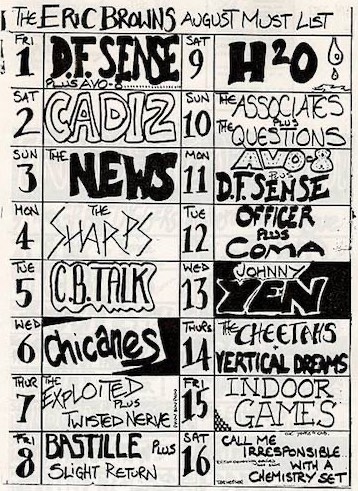 THE ERIC BROWNS AUGUST MUST LIST
FRI 1
D.F. SENSE
PLUS AVO-8
SAT 2
CADIZ
SUN 3
THE NEWS
MON 4
THE SHARPS
TUE 5
C.B. TALK
WED 6
Chicanes
THUR 7
THE EXPLOITED
PLUS
TWISTED NERVE
FRI 8
BASTILLE PLUS
SLIGHT RETURN
SAT 9
H2O
SUN 10
THE ASSOCIATES
PLUS
THE QUESTIONS
MON 11
AVO-8
PLUS
D.F. SENSE
TUE 12
OFFICER
PLUS
COMA
WED 13
JOHNNY
YEN
THURS 14
THE CHEETAHS
+
VERTICAL DREAMS
FRI 15
INDOOR
GAMES
SAT 16
CALL ME
IRRESPONSIBLE..
WITH A
CHEMISTRY SET